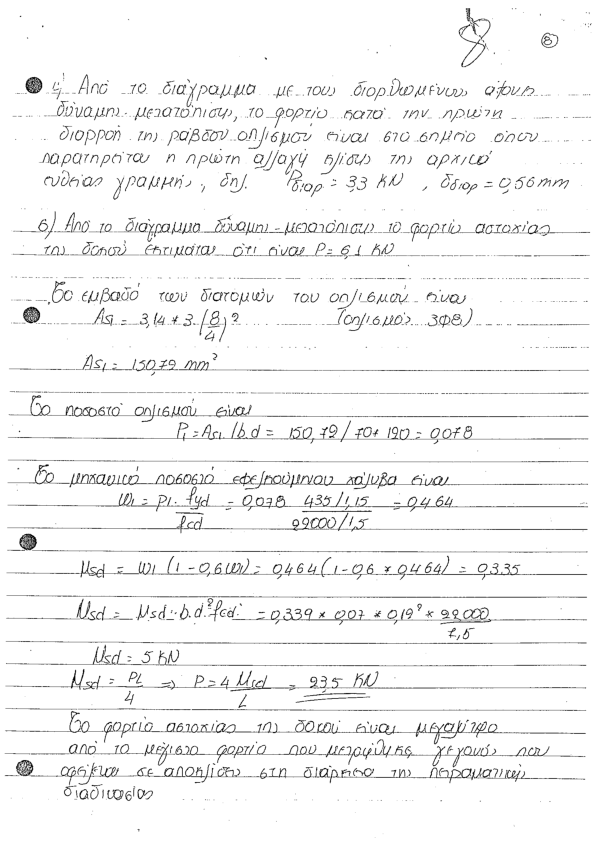 8
4) Από το διάγραμμα με τους διορθωμένους άξονες
δύναμης-μετατόπισης, το φορτίο κατά την πρώτη
διαρροή της ράβδου οπλισμού είναι στο σημείο όπου
παρατηρείται η πρώτη αλλαγή κλίσης της αρχικά
ευθείας γραμμής, δηλ. Pδιαρ = 3,3 KN , δδιαρ = 0,56 mm
6) Από το διάγραμμα δύναμης-μετατόπισης το φορτίο αστοχίας
της δοκού εκτιμάται ότι είναι P = 6,1 KN
Το εμβαδό των διατομών του οπλισμού είναι
As1 = 3,14 * 3 (8/4)² (οπλισμός 3Φ8)
As1 = 150,79 mm²
Το ποσοστό οπλισμού είναι
P1 = As1/b.d = 150,79/70*190 = 0,078
Το μηχανικό ποσοστό εφελκυόμενου χάλυβα είναι
ω1 = p1. fyd/fcd = 0,078 435/1,15 / 22000/1,5 = 0,464
μsd = ω1 (1 - 0,6ω1) = 0,464 (1 - 0,6 * 0,464) = 0,335
Msd = μsd . b.d² fcd = 0,339 * 0,07 * 0,19² * 22000/1,5
Msd = 5 KN
Msd = PL/4 ⇒ P = 4 Msd/L = 23,5 KN
Το φορτίο αστοχίας της δοκού είναι μεγαλύτερο
από το μέγιστο φορτίο που μετρήθηκε γεγονός που
οφείλεται σε αποκλίσεις στη διάρκεια της πειραματικής
διαδικασίας